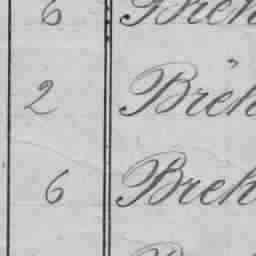 6 Breh
2 Breh
6 Breh